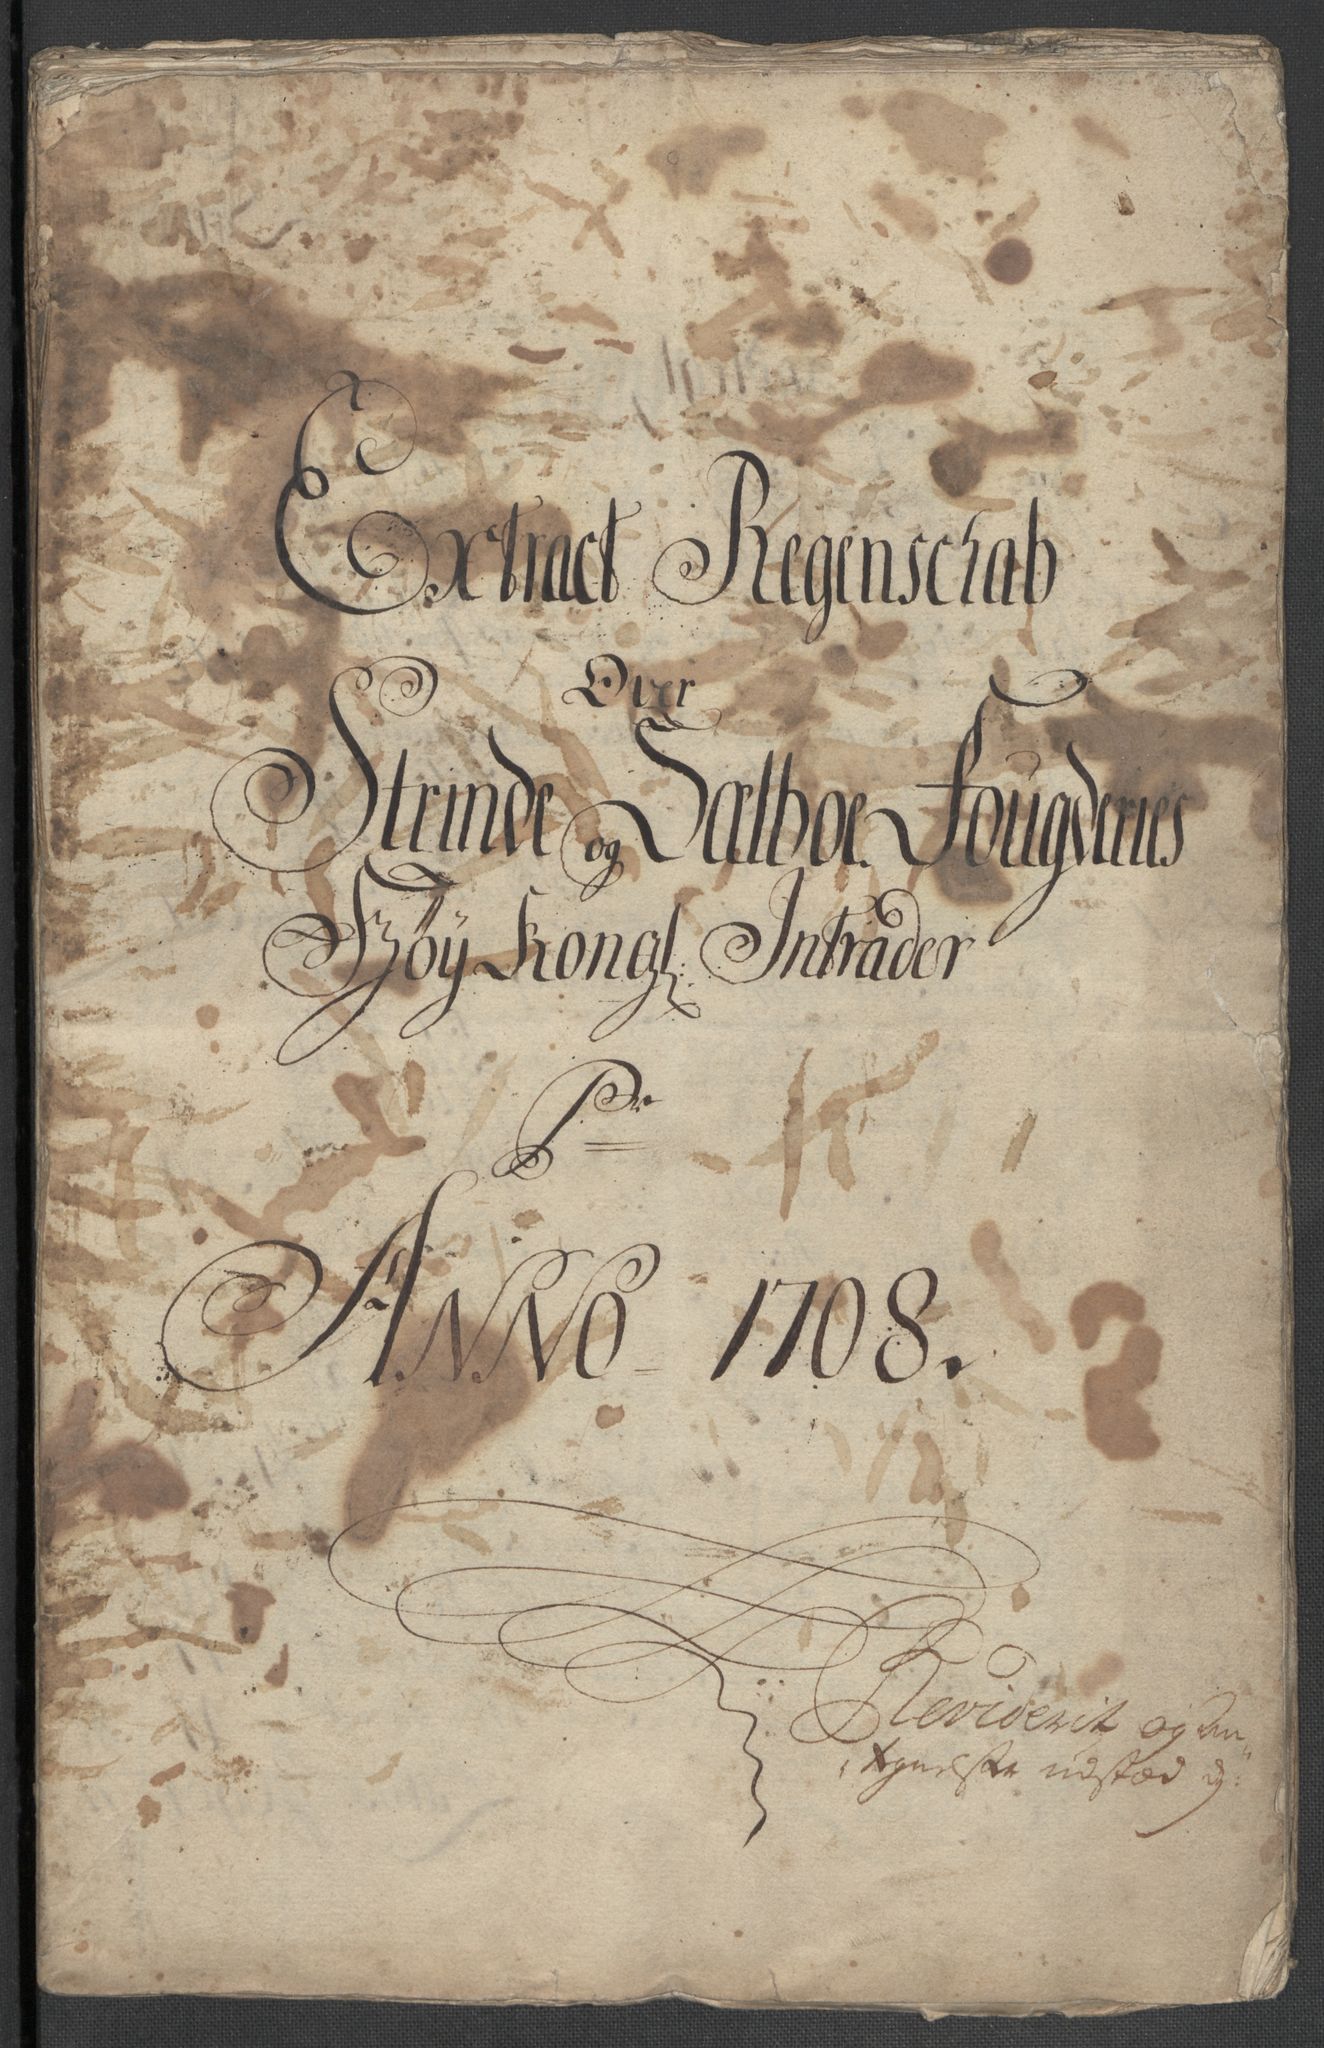 Extract Regenschab
Over
Strinde og Sælboe Fougderies
Høy Kongl: Intrader
Pr
ANNO 1708.
Reviderit og An„
udstæd